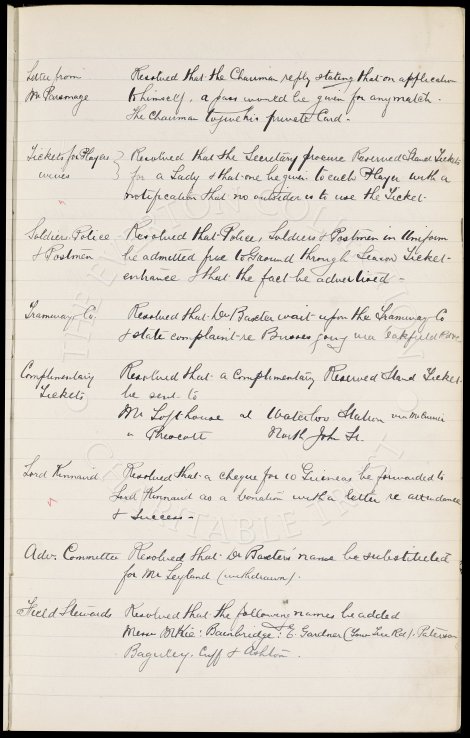 Letter from Resolved that the Chairman reply stating that on application
Mr Parsonage to himself, a pass would be given for any match.
The Chairman to give his private Card.
Tickets for Players Resolved that the Secretary procure Reserved Stand Tickets
wives for a Lady & that one be given to each Player with a
notification that no outsider is to use the Ticket.
Soldiers Police Resolved that Police, Soldiers & Postmen in Uniform
& Postmen be admitted free to Ground through Season Ticket
entrance & that the fact be advertised.
Tramway Co. Resolved that Dr Baxter wait upon the Tramway Co
& state complaint re Busses going via Oakfield
Complimentary Resolved that a Complimentary Reserved Stand Ticket
Tickets be sent to
Mr Lofthouse at Waterloo Station
" Prescott North John St.
Lord Kinnaird Resolved that a cheque for 10 Guineas be forwarded to
Lord Kinnaird as a donation with a letter re attendance
& success.
Adv. Committee Resolved that Dr Baxters name be substituted
for Mr Leyland (withdrawn).
Field Stewards Resolved that the following names be added
Messrs McKie: Bainbridge: & E. Gardner Paterson
Baguley. Cuff & Ashton.
THE EVERTON COLLECTION
CHARITABLE TRUST